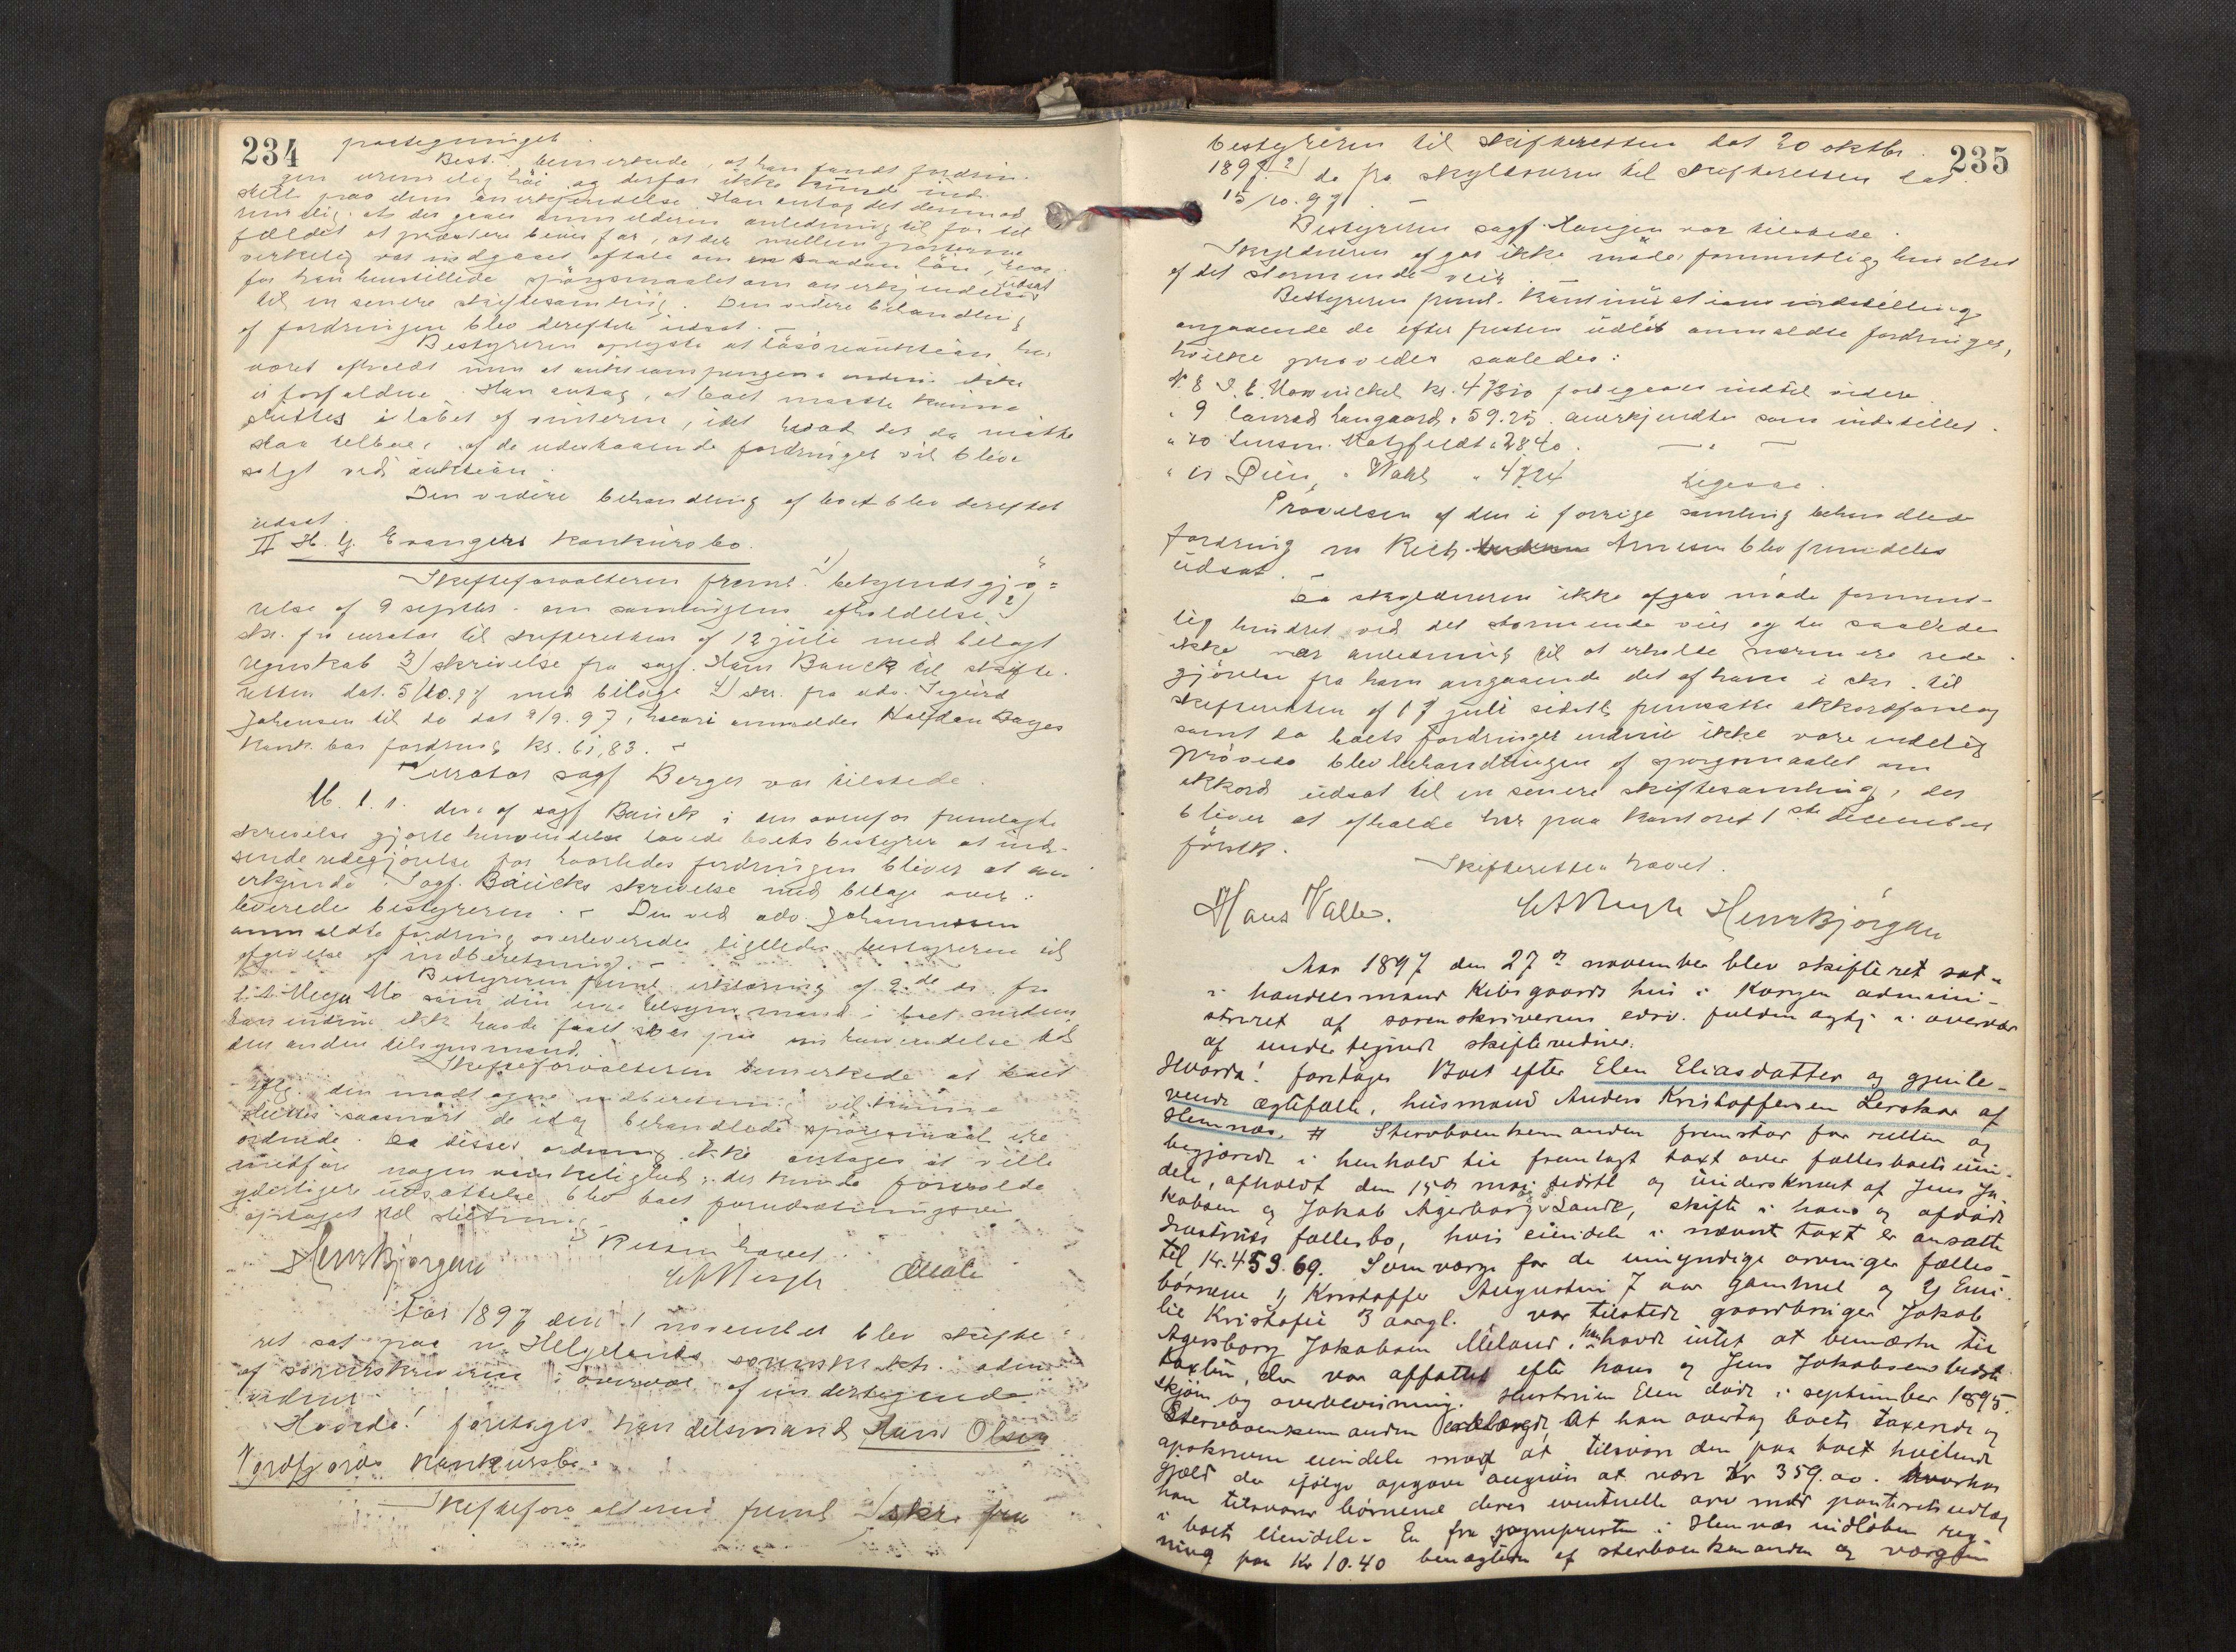 234
protegninget.
Best. bemerkede, at han fandt fordrin-
gen urimelig höi og derfor ikke kunde ind-
stille paa dens anerkjendelse. Han antog det dermod
rimelig at der gaves anmelderen anledning til for til
fældet at præstere bevis for, at der mellem parterne
virkelig var indgaaet aftale om en saadan lön, hvor
for han henstillede spörgsmaalet om anerkjendelse udsat
til en senere skiftesamling. Den videre behandling
af fordringen blev derefter udsat. –
Bestyreren oplyste at lösöreauktion har
været afholdt men at auktionspengene endnu ikke
er forfaldne. Han antog, at boet maatte kunne
sluttes i löbet af vinteren, idet hvad der da maatte
staa tilbage af de udestaaende fordringer vil blive
solgt ved auktion.
Den videre behandling af boet blev derefter
udsat.
II H. G. Evangers konkursbo.
Skifteforvalteren freml. 1) bekjendtgjö-
relse af 9 septbr. om samlingens afholdelse 2)
skr. fra curator til skifteretten af 12 juli med bilagt
regnskab 3) skrivelse fra sagf. Hans Bauck til skifte-
retten dat. 5/10.97 med bilage 4) skr. fra adv. Sigurd
Johansen til do dat 9/9.97, hvori anmeldes Halfdan Bages
konk. bos fordring kr. 61,83. –
Curator sagf Berger var tilstede.
M. t. t. den af sagf Bauck i den ovenfor fremlagte
skrivelse gjorte henvendelse lovede boets bestyrer at ind-
sende redegjörelse for hvorledes fordringen bliver at an-
erkjende. Sagf. Baucks skrivelse med bilage over-
leveredes bestyreren. – Den ved adv. Johannesen
anmeldte fordring overleveredes ligeledes bestyreren til
afgivelse af indberetning. –
Bestyreren freml. erklæring af 2de ds. fra
Mo som den ene tilsynsmand i boet medens
han endnu ikke havde faaet svar paa en henvendelse til
den anden tilsynsmand.
Skifteforvalteren bemerkede at boet
iflg. den modtagne indberetning vil kunne
sluttes saasnart de idag behandlede spörgsmaal ere
ordnede. Da disses ordning ikke antages at ville
medföre nogen vanskelighed, der kunde forvolde
yderligere udsættelse blev boet forudsætningsvis
optaget til slutning.
Retten hævet.
Aar 1897 den 1 november blev skifte-
ret sat paa n. Helgelands sorenskr. ktr. adm.
af sorenskriveren i overvær af undertegnede
vidner
Hvorda! foretages handelsmand Hans Olsen
konkursbo.
Skifteforvalteren freml 1) skr. fra
235
bestyreren til skifteretten dat 20 oktbr.
1897. 2) do fra skyldneren til skifteretten dat
15/10.97. –
Bestyreren sagf. Haugen var tilstede.
Skyldneren afgav ikke möde, formentlig hindret
af det stormende veir.
Bestyreren freml. kontinuationsindstilling
angaaende de efter fristens udløb anmeldte fordringer,
hvilke prövedes saaledes:
N. 8 kr. foregaaes indtil videre.
" 9 Conrad Langaard " 59.25 anerkjendtes som indstillet.
" 10 " 28.40 . — " —
" 11 " 47.24 Ligesaa.
Prövelsen af den i forrige samling behandlede
fordring no Arnesen blev fremdeles
udsat.
Da skyldneren ikke afgav möde forment-
lig hindret ved det stormende veir og da saaledes
ikke var anledning til at erholde nærmere rede-
gjörelse fra ham angaaende det af ham i skr. til
skifteretten af 17 juli sidstl. fremsatte akkordforslag
samt da boets fordringer endnu ikke vare endelig
prövede blev behandlingen af spörgsmaalet om
akkord udsat til en senere skiftesamling, der
bliver at afholde her paa kontoret 1ste december
förstk.
Skifteretten hævet.
Hans Valle.
Aar 1897 den 27de november blev skifteret sat
i handelsmand Kibsgaards hus i Korgen admini-
streret af sorenskriverens edsv. fuldmægtig i overvær
af undertegnede skiftevidner.
Hvorda! foretages Boet efter Elen Eliasdatter og gjenle-
vende ægtefælle, husmand Anders Kristoffersen Lerskar af
Hemnæs. # Sterboenkemanden fremstod for retten og
begjærede i henhold til fremlagt taxt over fællesboets eien-
dele, afholdt den 15de maj sidstl og underskrevet af Jens Ja-
kobsen og Jakob Agerborg og S. Sande, skifte i hans og afdöde
hustrus fællesbo, hvis eiendele i nævnte taxt er ansatte
til kr. 459.69. Som værge for de umyndige arvinger fælles-
börnene 1) Kristoffer Augustin 7 aar gammel og 2) Emi-
lie Kristofie 3 aargl. var tilstede gaardbruger Jakob
Agersborg Jakobsen Meland, han havde intet at bemærke til
taxten, der var affattet efter hans og Jens Jakobsens bedste
skjön og overbevisning. Hustruen Elen döde i september 1895.
Sterboenkemanden erklærede, at han overtog boets taxerede og
opskrevne eiendele mod at tilsvare den paa boet hvilende
gjæld der ifølge opgave angives at være Kr 359.00. hvorhos
han tilsvarer börnene deres eventuelle arv mod panteretsudlæg
i boets eiendele. En fra sognepresten i Hemnæs indløben reg-
ning paa Kr 10.40 benægtedes af sterboenkemanden og værgen